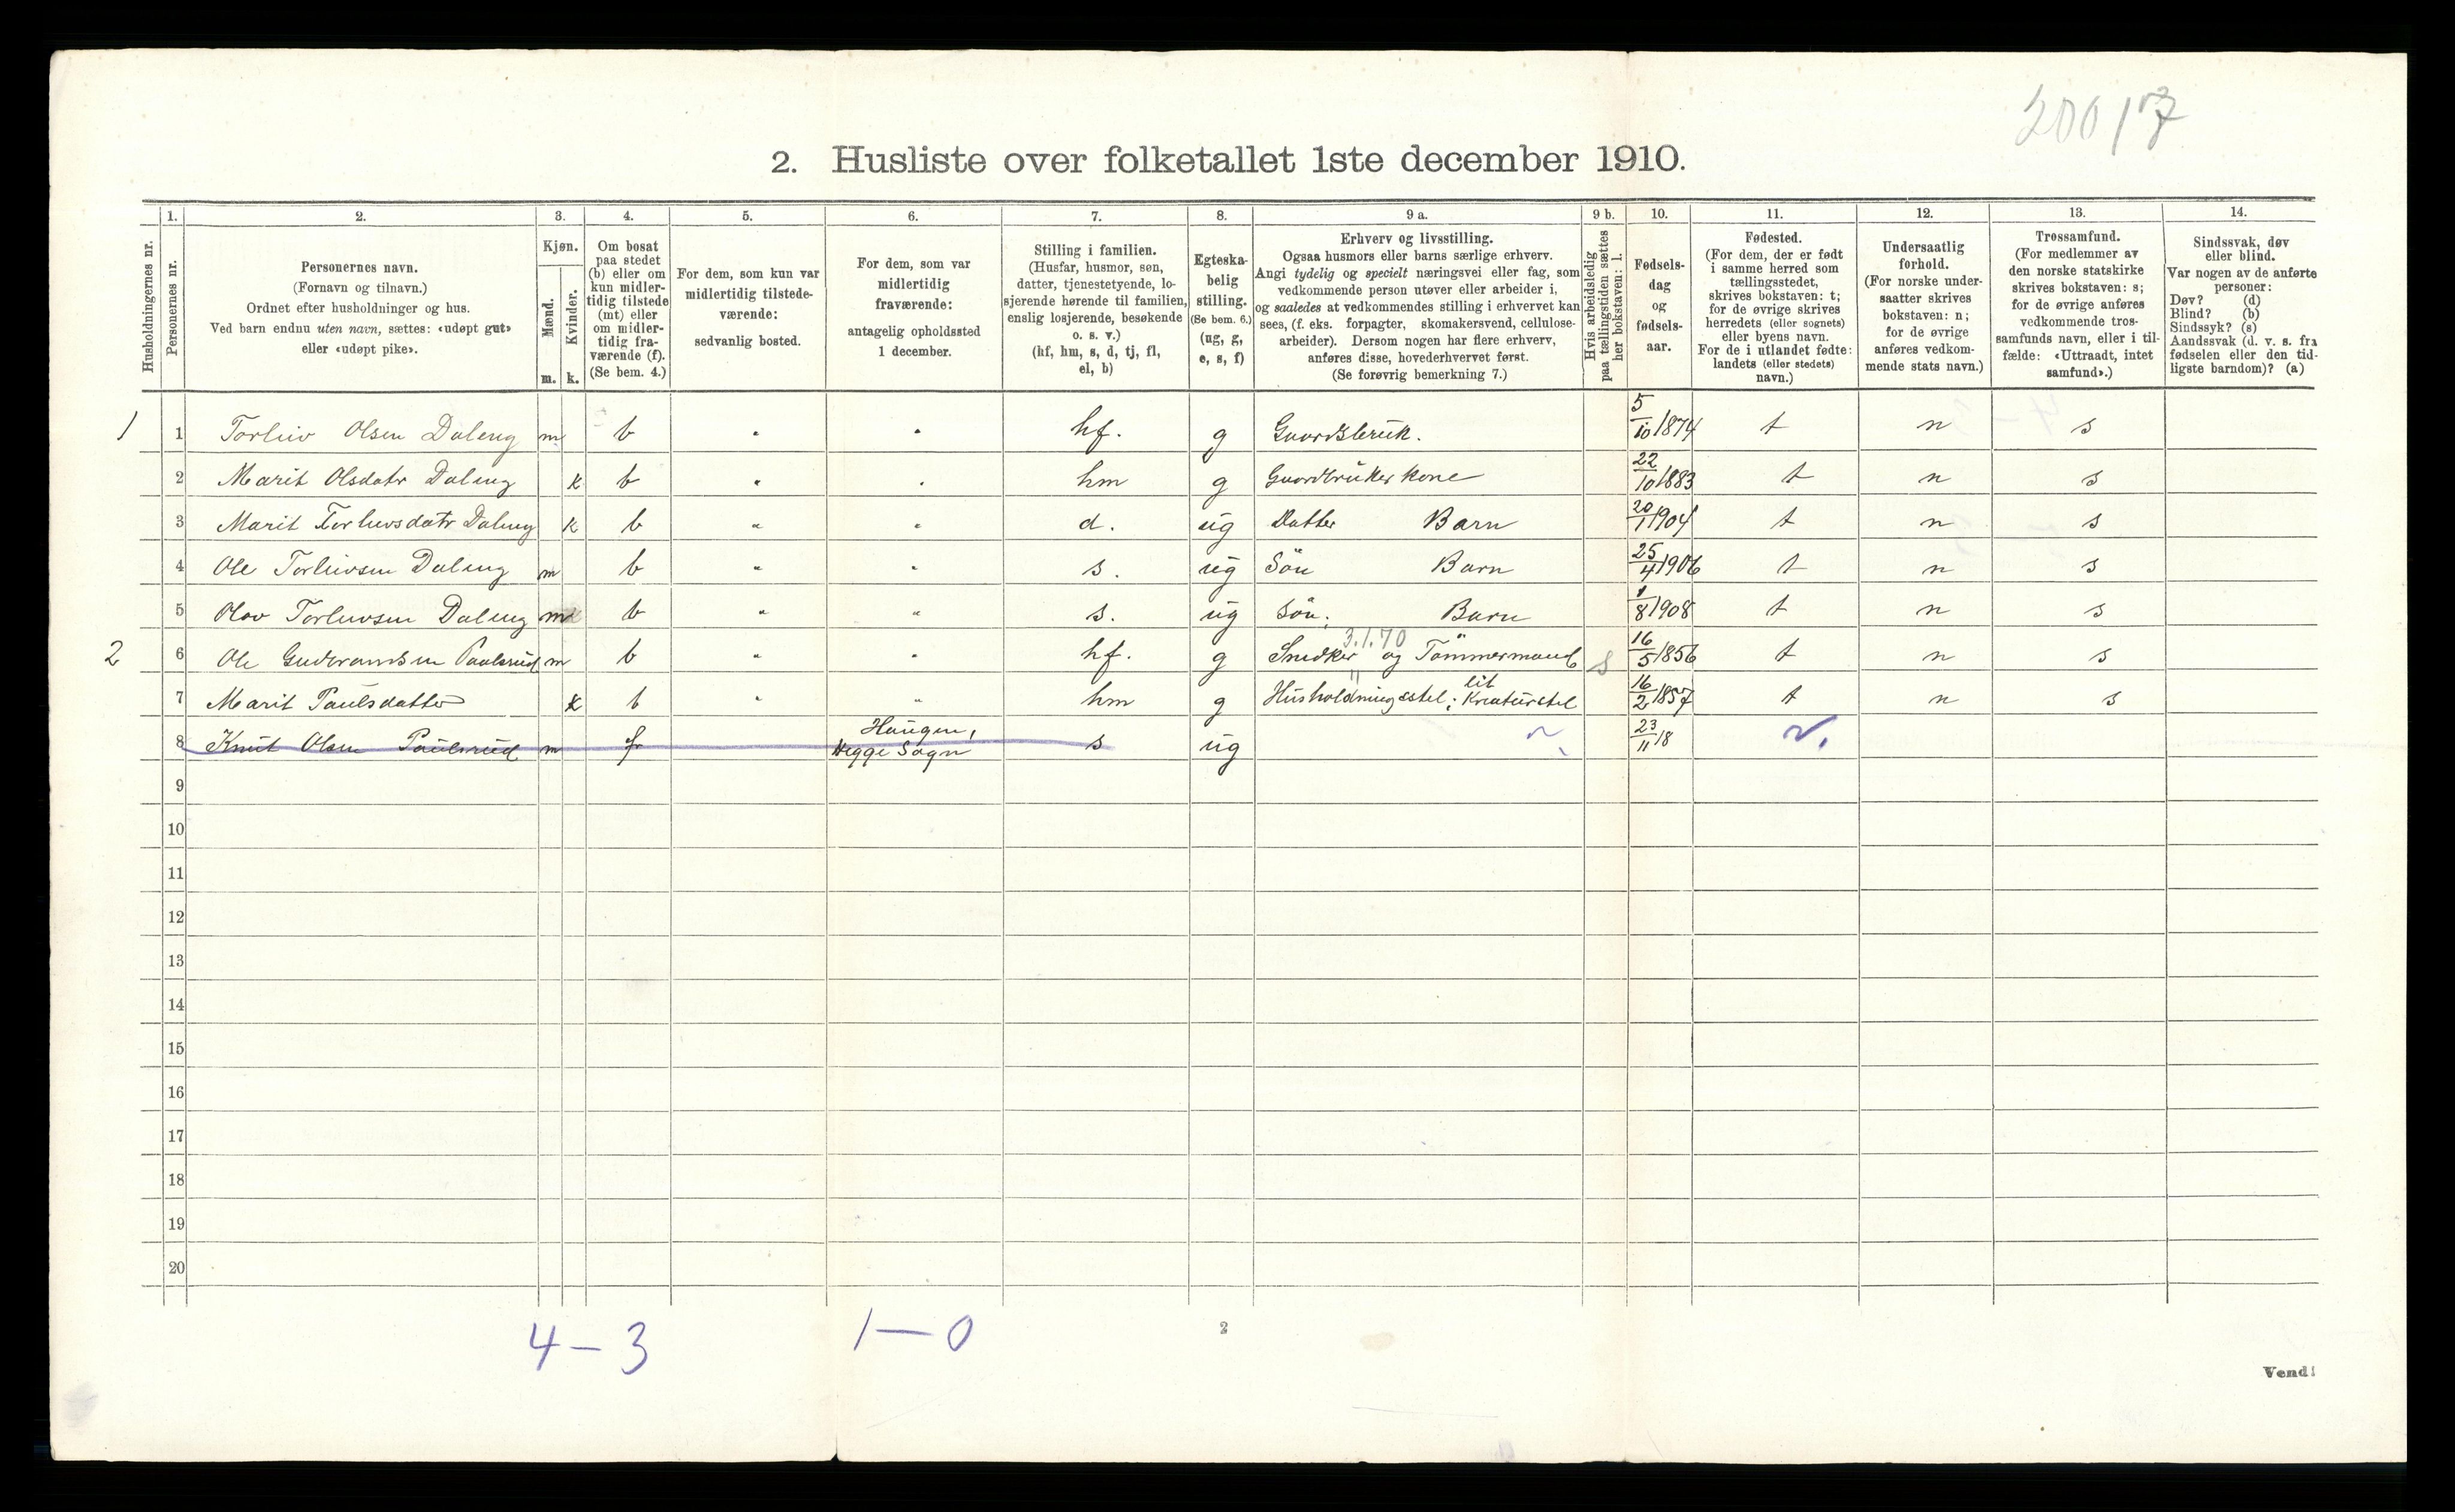 20017
2. Husliste over folketallet 1ste december 1910.
Husholdningernes nr.
1.
Personernes nr.
2.
Personernes navn.
(Fornavn og tilnavn.)
Ordnet efter husholdninger og hus.
Ved barn endnu uten navn, sættes: «udøpt gut»
eller «udøpt pike».
3.
Kjøn.
Mænd.
Kvinder.
m. k.
4.
Om bosat
paa stedet
(b) eller om
kun midler-
tidig tilstede
(mt) eller
om midler-
tidig fra-
værende (f).
(Se bem. 4.)
5.
For dem, som kun var
midlertidig tilstede-
værende:
sedvanlig bosted.
6.
For dem, som var
midlertidig
fraværende:
antagelig opholdssted
1 december.
7.
Stilling i familien.
(Husfar, husmor, søn,
datter, tjenestetyende, lo-
sjerende hørende til familien,
enslig losjerende, besøkende
o. s. v.)
(hf, hm, s, d, tj, fl,
el, b)
8.
Egteska-
belig
stilling.
(Se bem. 6.)
(ug, g,
e, s, f)
9 a.
Erhverv og livsstilling.
Ogsaa husmors eller barns særlige erhverv.
Angi tydelig og specielt næringsvei eller fag, som
vedkommende person utøver eller arbeider i,
og saaledes at vedkommendes stilling i erhvervet kan
sees, (f. eks. forpagter, skomakersvend, cellulose-
arbeider). Dersom nogen har flere erhverv,
anføres disse, hovederhvervet først.
(Se forøvrig bemerkning 7.)
9 b.
Hvis arbeidsledig
paa tællingstiden sættes
her bokstaven: l.
10.
Fødsels-
dag
og
fødsels-
aar.
11.
Fødested.
(For dem, der er født
i samme herred som
tællingsstedet,
skrives bokstaven: t;
for de øvrige skrives
herredets (eller sognets)
eller byens navn.
For de i utlandet fødte:
landets (eller stedets)
navn.)
12.
Undersaatlig
forhold.
(For norske under-
saatter skrives
bokstaven: n;
for de øvrige
anføres vedkom-
mende stats navn.)
13.
Trossamfund.
(For medlemmer av
den norske statskirke
skrives bokstaven: s;
for de øvrige anføres
vedkommende tros-
samfunds navn, eller i til-
fælde: «Uttraadt, intet
samfund».)
14.
Sindssvak, døv
eller blind.
Var nogen av de anførte
personer:
Døv? (d)
Blind? (b)
Sindssyk? (s)
Aandssvak (d. v. s. fra
fødselen eller den tid-
ligste barndom)? (a)
1 1 Torleiv Olsen Daleng m b " " hf. g Gaardsbruk. 5/10 1874 t n s
2 Marit Olsdatr Daleng k b " " hm g Gaardbruker kone 22/10 1883 t n s
3 Marit Torleivsdatr Daleng k b " " d. ug Datter Barn 20/1 1904 t n s
4 Ole Torleivsen Daleng m b " " s. ug Sön Barn 25/4 1906 t n s
5 Olav Torleivsen Daleng m b " " s. ug Sön. Barn 1/8 1908 t n s
3.1.70
2 6 Ole Gudbrandsen Paulsrud m b " " hf. g Snedker og Tömmermand s 16/5 1856 t n s
7 Marit Paulsdatter k b " " hm g Husholdningsstel; lit Kreaturstel 16/2 1857 t n s
8 Knut Olsen Paulsrud m f Haugen, Hegge Sogn s ug 23/11 18
9
10
11
12
13
14
15
16
17
18
19
20
4 – 3
1 – 0
2
Vend!